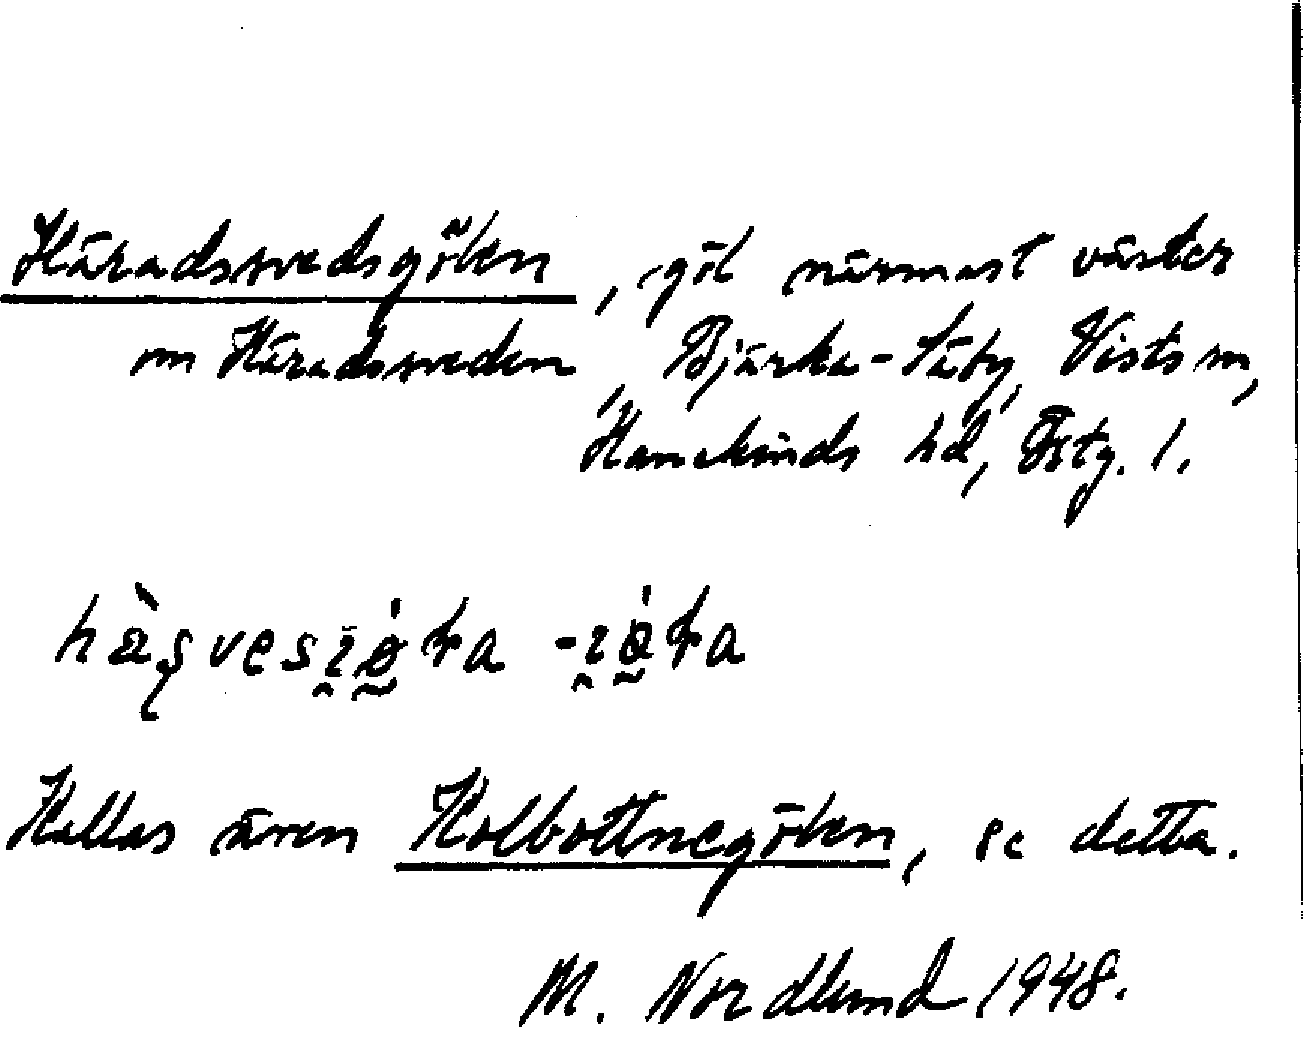 Häradssvedsgölen, göl närmast väster
om Häradssveden, Bjärka-Säby, Vists sn,
Hanekinds hd, Östg. l.
Kallas även Kolbottnegölen, se detta.
M. Nordlund 1948.